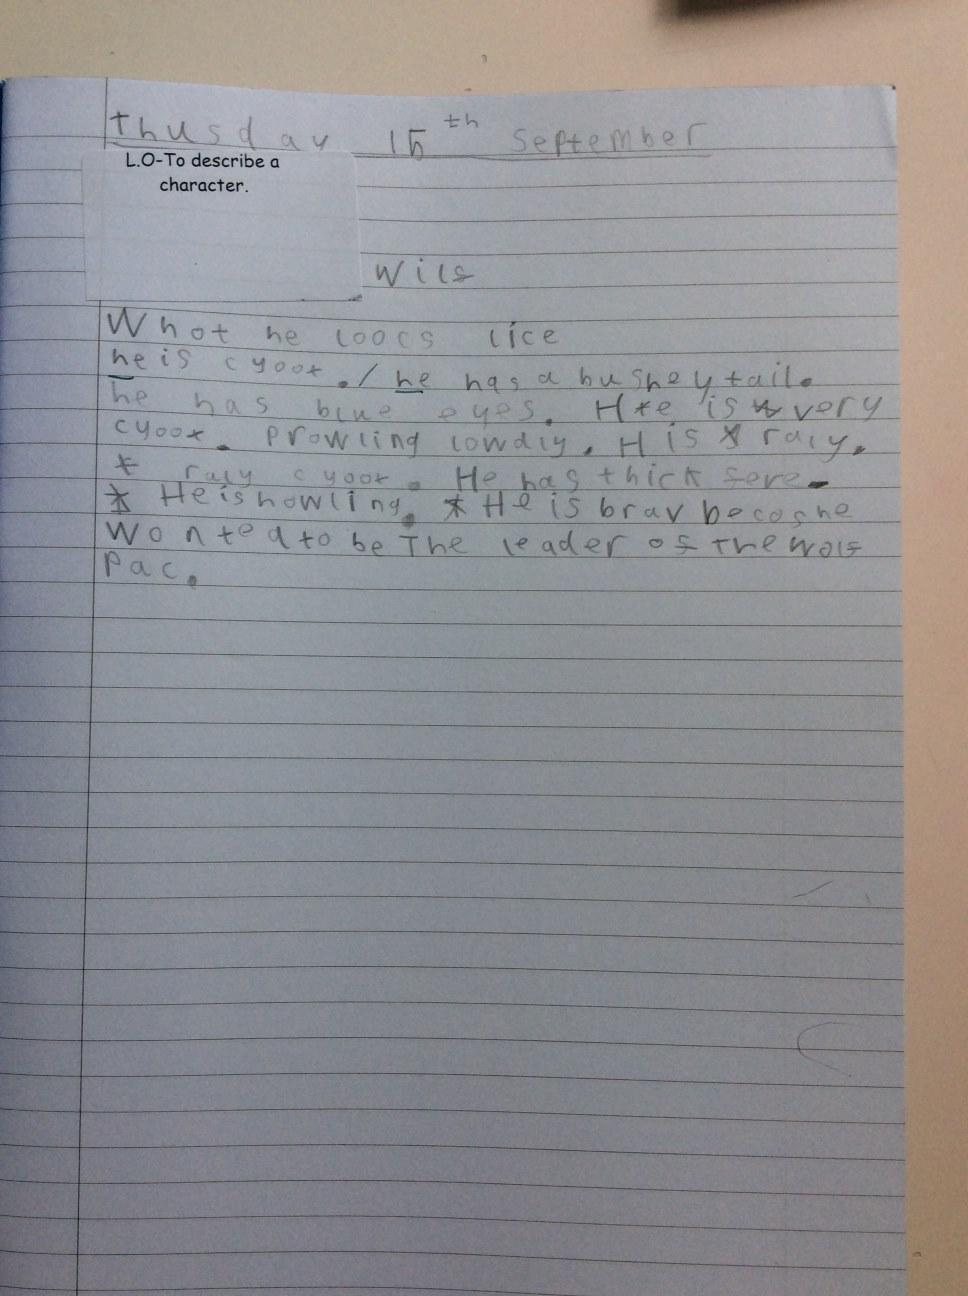 thusday 15th September
L.O-To describe a
character.
Wilf
Whot he loocs lice
he is cyoot. / he has a bushey tail.
he has blue eyes. He is very
cyoot. Prowling lowdly. H is raly.
* raly cyoot. He has thick fere.
* He is howling. * He is brav becos he
wonted to be The leader of The wolf
Pac.